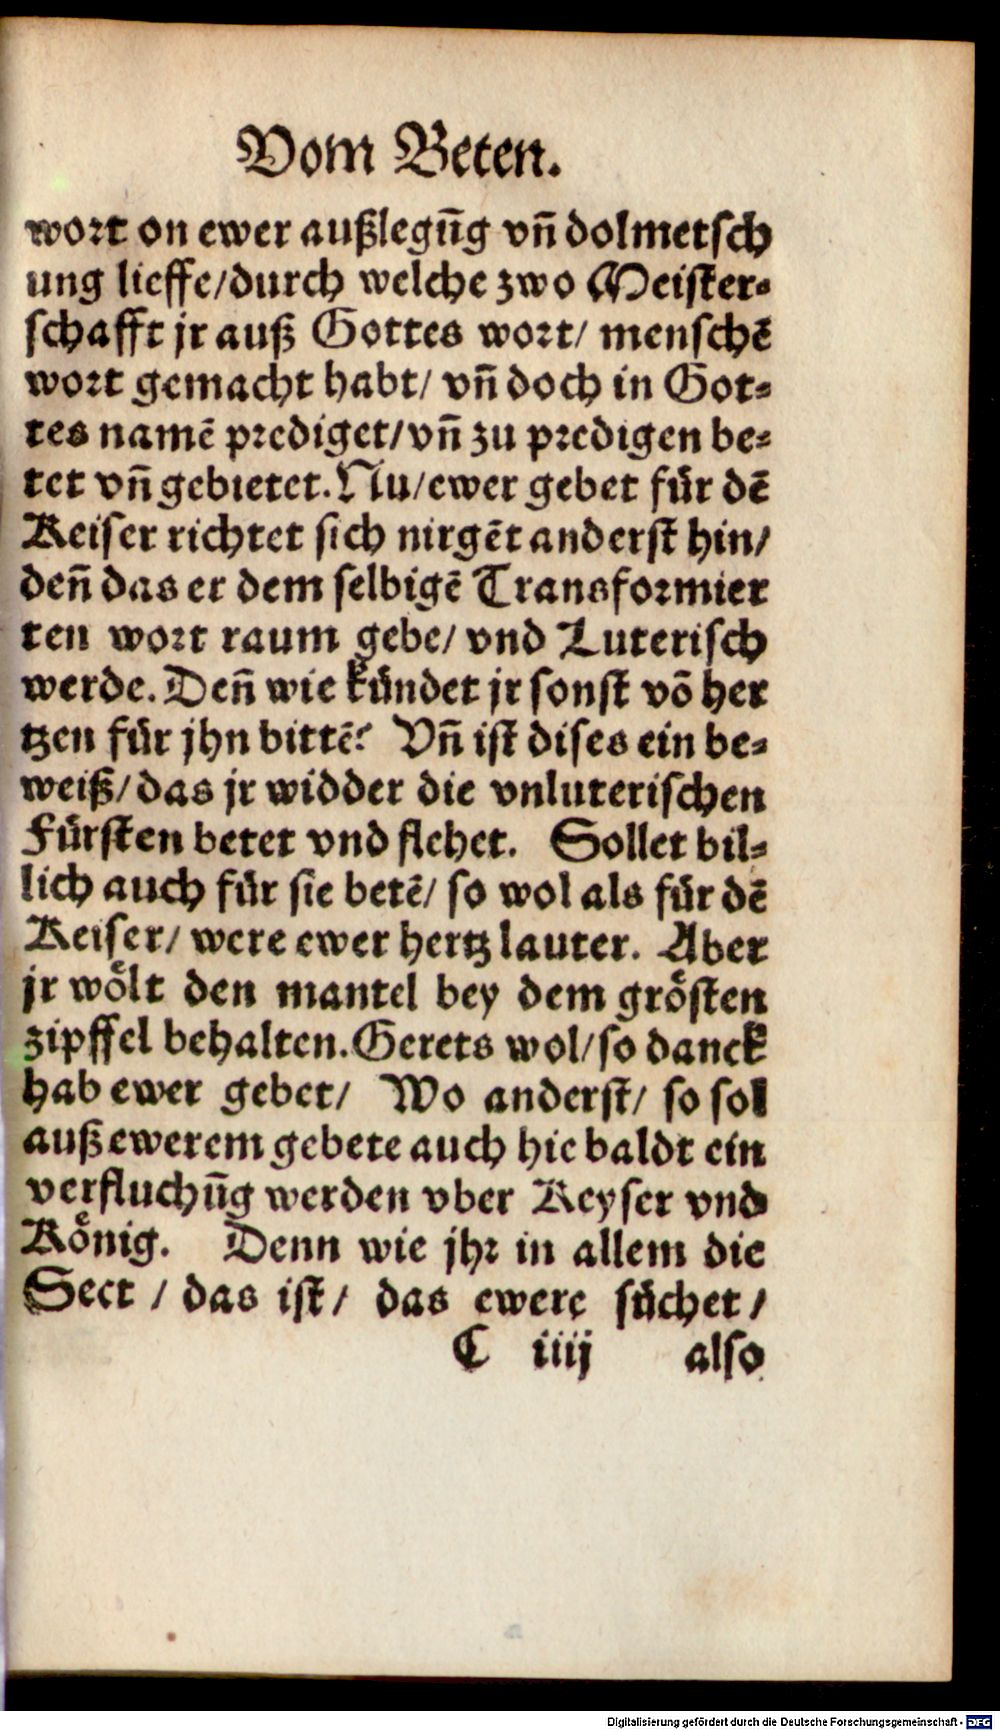 Vom Beten.
wort on ewer außlegūg vñ dolmetsch
ung lieffe/durch welche zwo Meister⸗
schafft jr auß Gottes wort/ menschē
wort gemacht habt/ vñ doch in Got⸗
tes namē prediget/vñ zu predigen be⸗
tet vñ gebietet. Nu/ewer gebet für dē
Keiser richtet sich nirgēt anderst hin/
deñ das er dem selbigē Transformier
ten wort raum gebe/ vnd Luterisch
werde. Deñ wie kündet jr sonst vō her
tzen für jhn bittē? Vñ ist dises ein be⸗
weiß/das jr widder die vnluterischen
Fürsten betet vnd flehet. Sollet bil⸗
lich auch für sie betē/ so wol als für dē
Keiser/ were ewer hertz lauter. Aber
jr woͤlt den mantel bey dem groͤsten
zipffel behalten. Gerets wol/so danck
hab ewer gebet/ Wo anderst/ so sol
auß ewerem gebete auch hie baldt ein
verfluchūg werden vber Keyser vnd
Koͤnig. Denn wie jhr in allem die
Sect / das ist/ das ewere süchet /
C iiij also
Digitalisierung gefördert durch die Deutsche Forschungsgemeinschaft - DFG